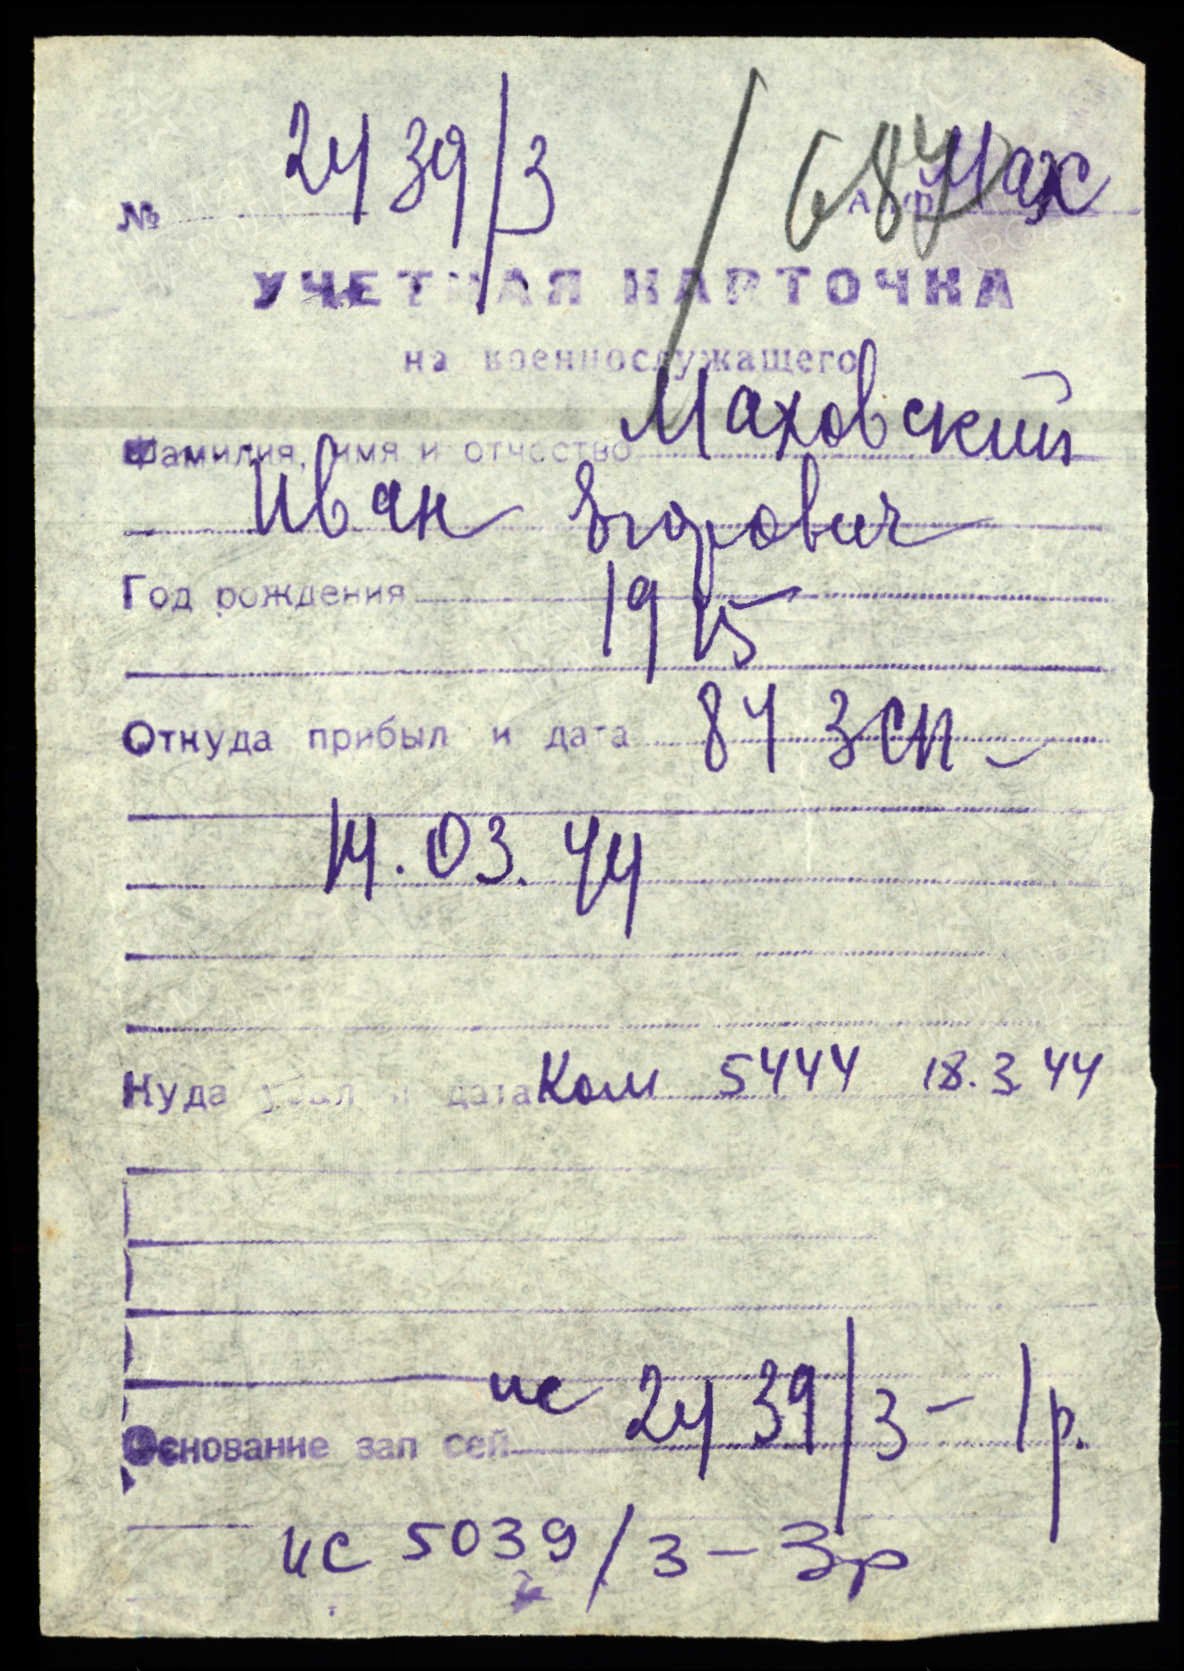 № 2439/3 687 Алф. Мах
УЧЕТНАЯ КАРТОЧКА
на военнослужащего
Фамилия, имя и отчество Маховский
Иван Егорович
Год рождения 1915
Откуда прибыл и дата 84 зсп
14.03.44
Куда убыл и дата Ком 5444 18.3.44
ис 2439/3 - 1р.
Основание записей
ис 5039/3 - 3р